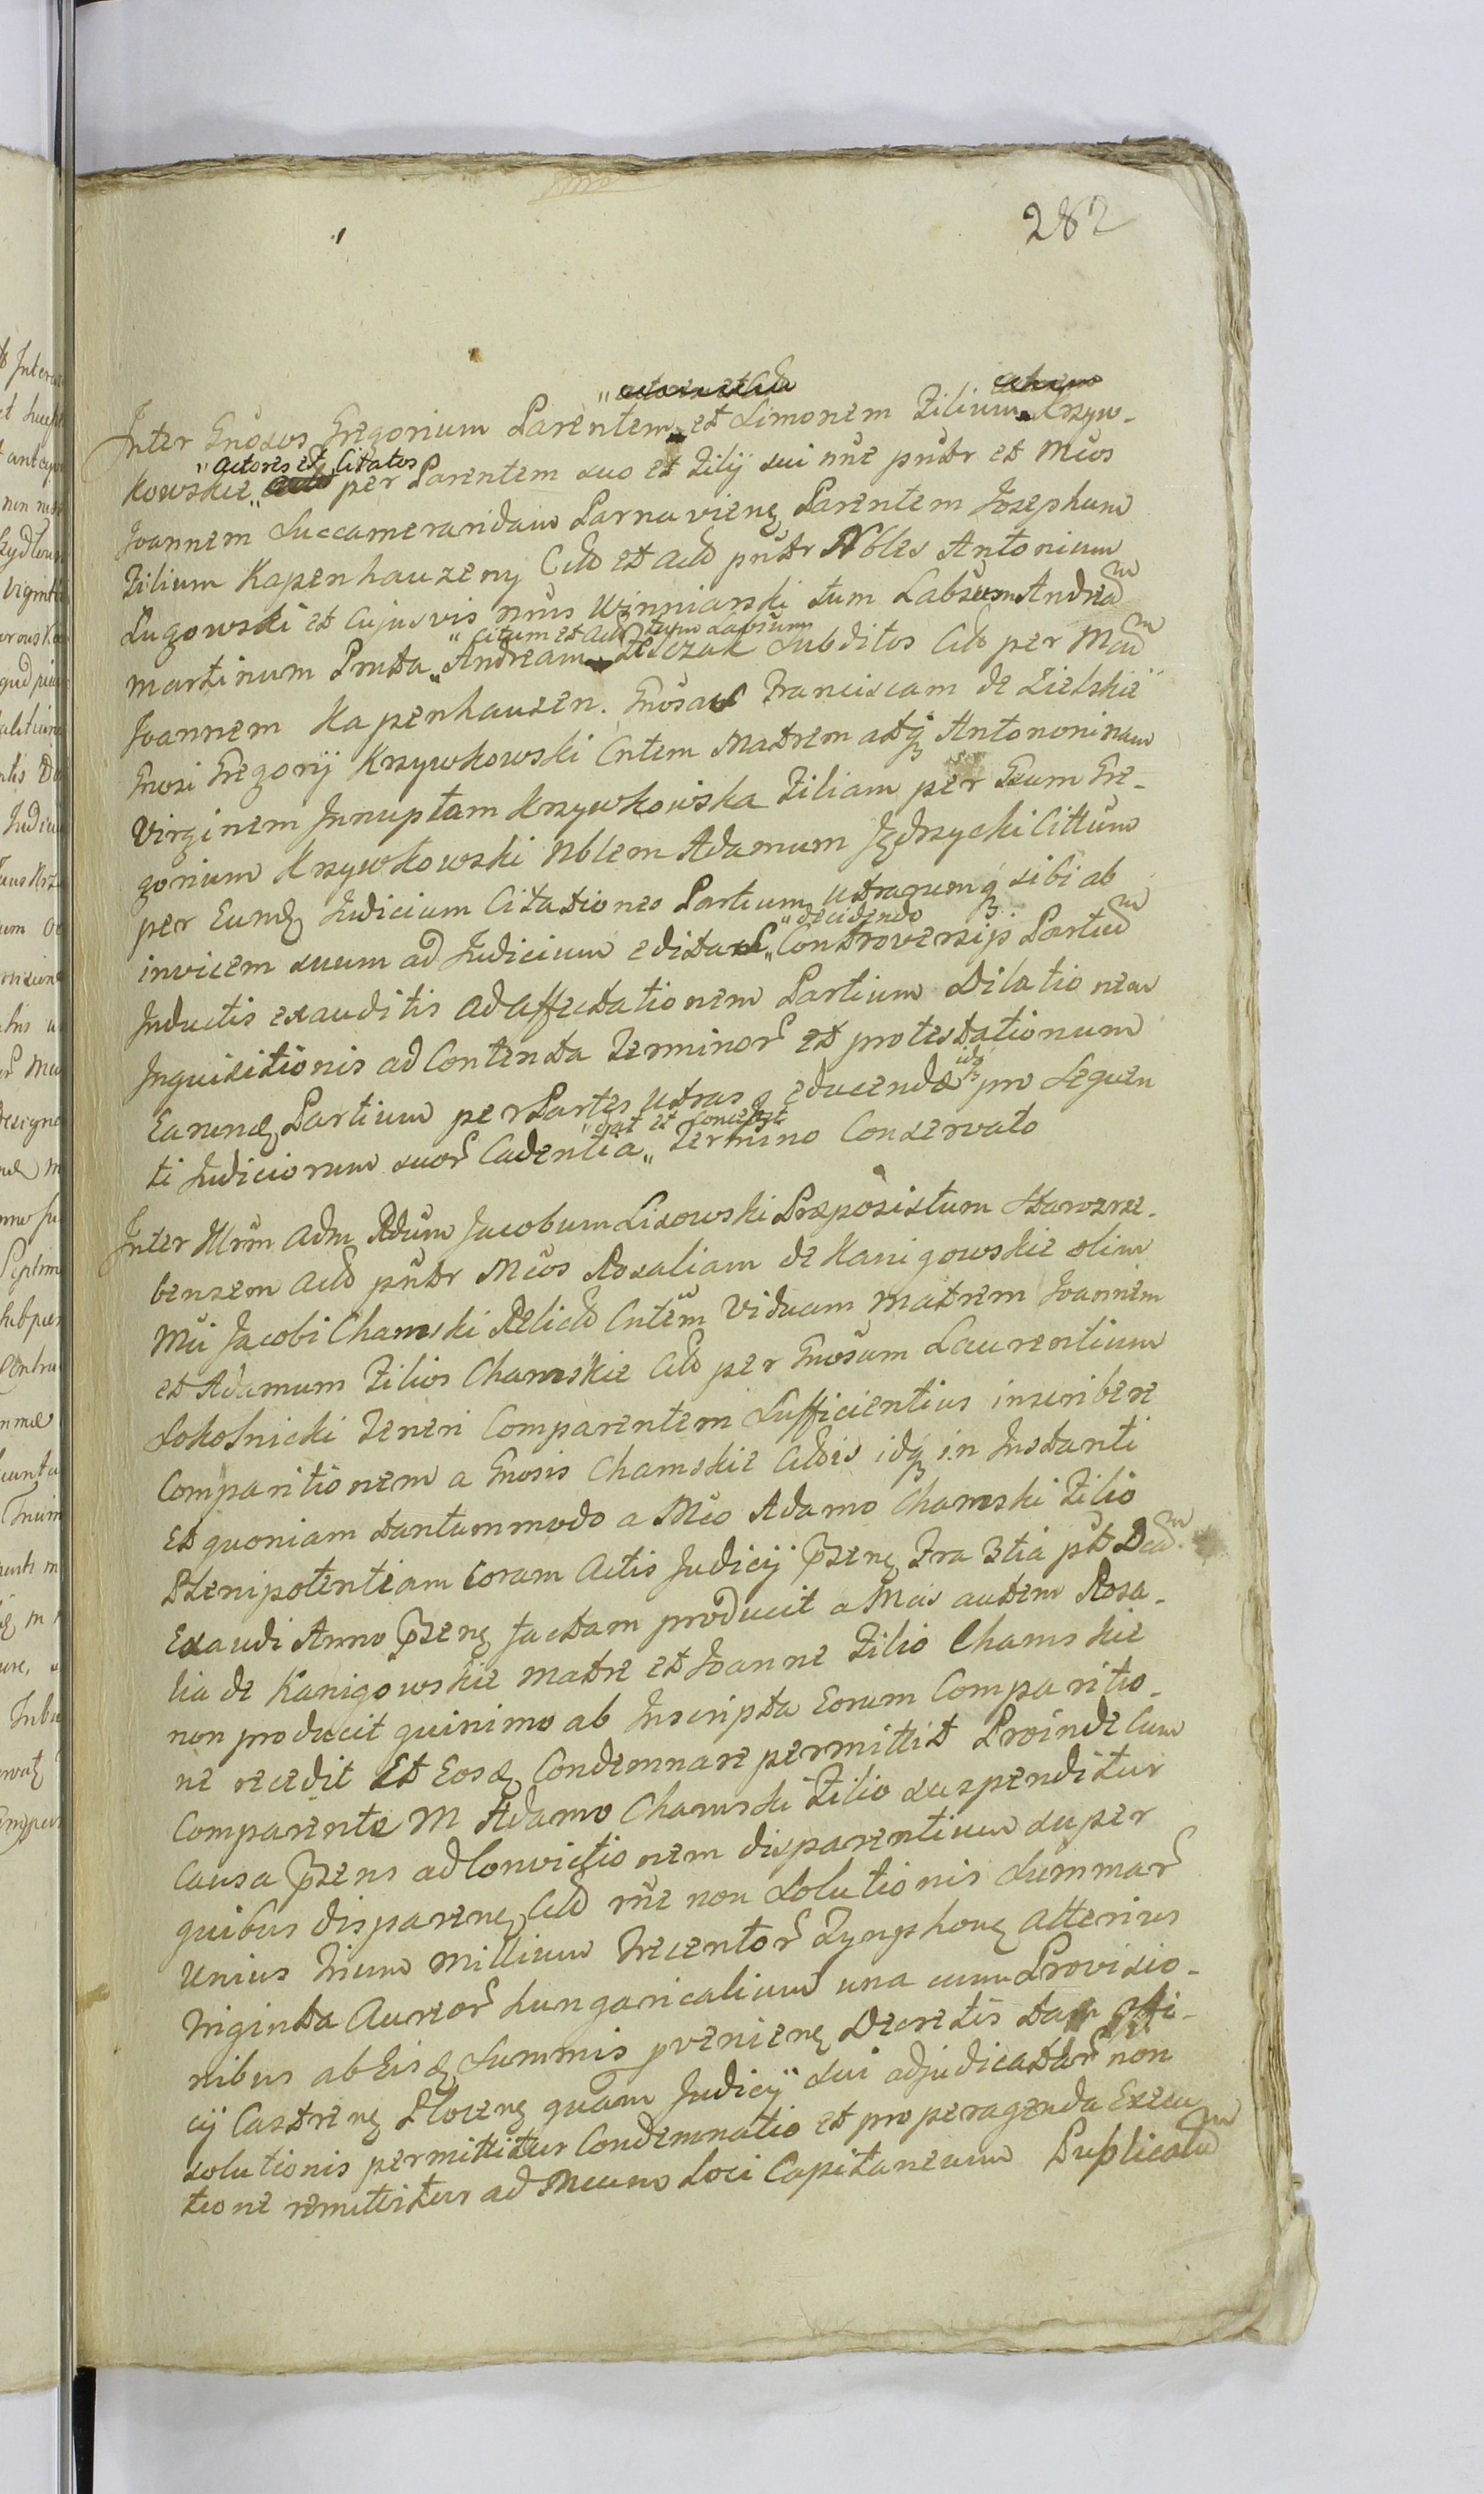 282
Inter Gnosos Gregorium Parentem et Simonem Filium Krzyw-
kowskie „actores et Citatos per Parentem suo et Filij sui nñe pñtr et Mcos
Joannem Succamerandam Parnavienę Parentem Josephum
Filium Kapenhauzeny Citt et actt pñtr Nbles Antonium
Lugowski et Cujusvis nñis Winniarski tum Labsum Andream
„Citum et actt tum Labsum
Martinum Pruta „Andream Leszczak Subditos Citt per Mcum
Joannem Kapenhausen. Gnosam Franciscam de Zielskie
Gnosi Gregorij Krzywkowski Cntem Matrem atq Antononinam
Virginem Innuptam Krzywkowska Filiam per Gsum Gre-
gorium Krzywkowski Nblem Adamum Jędrzycki Cittum
per Eundę Judicium Citationes Partium utrarumq sibi ab
invicem suum ad Judicium editar „decidendo Controversijs Partium
Inductis exauditis ad affectationem Partium Dilationem
Inquisitionis ad Contenta Terminor et protestationum
Earundę Partium per Partes utrasq educendæ idq pro Sequen
ti Judiciorum suor Cadentia „dat et Concedit Termino Conservato
Inter Illrm Adm Rdum Jacobum Lisowski Præpositum Starozrze-
bensem actt pñtr Mcos Rosaliam de Kanigowskie olim
Mci Jacobi Chamski Relictt Cntem Viduam matrem Joannem
et Adamum Filios Chamskie Citt per Gnosum Laurentium
Sokolnicki Teneri Comparentem Sufficientius inscribere
Comparitionem a Gnosis Chamskie Cittis idq in Instanti
Et quoniam tantummodo a Mco Adamo Chamski Filio
Plenipotentiam Coram Actis Judicij p̄senę Fra 3tia pt Dcam
Exaudi Anno p̄senę factam producit a Mcis autem Rosa-
lia de Kanigowskie matre et Joanne Filio Chamskie
non producit quinimo ab Inscripta Eorum Comparitio-
ne recedit Et Eosdę Condemnare permittit Proinde Cum
Comparente M Adamo Chamski Filio suspenditur
Causa p̄sens ad Convictionem disparentium super
quibus disparenę Citt rñe non Solutionis Summar
Unius Trium Millium Trecentor Tynfhonę alterius
Triginta Aureor hungaricalium una cum Provisio-
nibus ab Eisdę Summis pvenienę Decretis tam Offi-
cij Castrenę Plocenę quam Judicij sui adjudicatar non
solutionis permittitur Condemnatio et pro peragenda Execu
tione remittitur ad Mcum Loci Capitaneum Publicatum